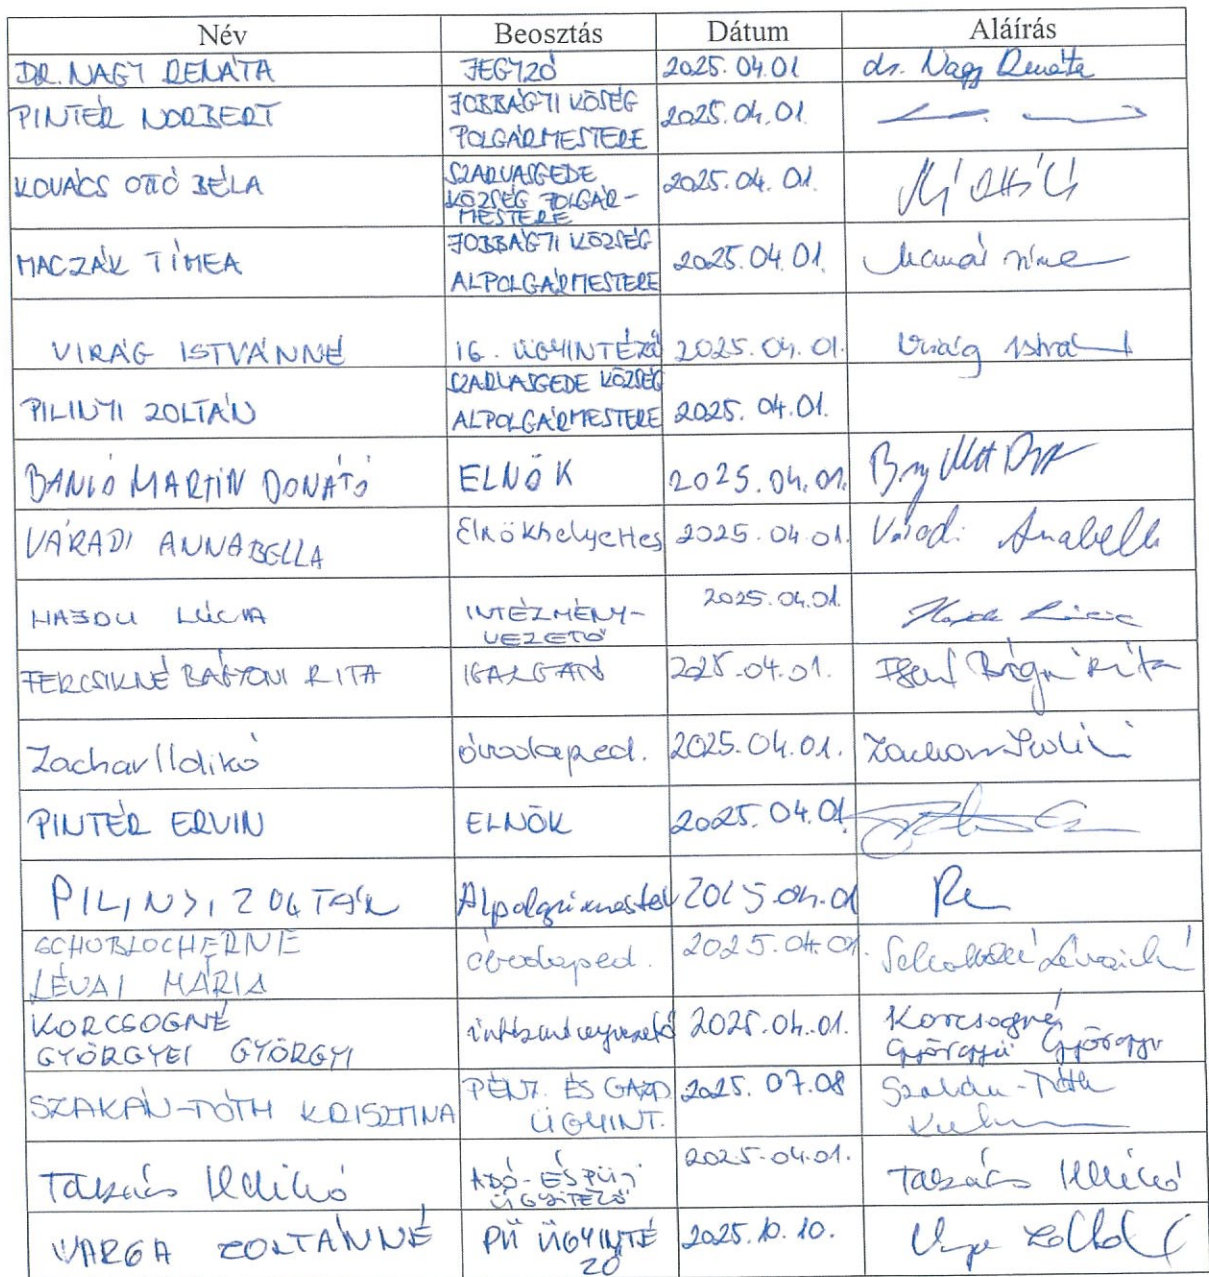 Név Beosztás Dátum Aláírás
DR. NAGY RENÁTA JEGYZŐ 2025.04.01 dr. Nagy Renáta
PINTÉR NORBERT JOBBÁGYI KÖSÉG POLGÁRMESTERE 2025.04.01.
KOVÁCS OTTÓ BÉLA SZARVASGEDE KÖZSÉG POLGÁR-MESTERE 2025.04.01.
MACZÁK TÍMEA JOBBÁGYI KÖZSÉG ALPOLGÁRMESTERE 2025.04.01.
VIRÁG ISTVÁNNÉ IG. ÜGYINTÉZŐ 2025.04.01. Virág Istvá
PILINYI ZOLTÁN SZARVASGEDE KÖZSÉG ALPOLGÁRMESTERE 2025.04.01.
BANKÓ MARTIN DONÁTÓ ELNÖK 2025.04.01.
VÁRADI ANNABELLA Elnökhelyettes 2025.04.01. Váradi Anabella
HAJDU LÚCIA INTÉZMÉNY-VEZETŐ 2025.04.01.
FERCSIKNÉ BAGYONI RITA IGAZGATÓ 2025.04.01. Rita
Zachar Ildikó óvodaped. 2025.04.01.
PINTÉR ERVIN ELNÖK 2025.04.01.
PILINYI ZOLTÁN Alpolgármester 2025.04.01
SCHOBLOCHERNÉ LÉVAI MÁRIA óvodaped. 2025.04.01.
KORCSOGNÉ GYÖRGYEI GYÖRGYI intézményvezető 2025.04.01. Korcsogné Györgyei Györgyi
SZAKÁN-TÓTH KRISZTINA PÉNZ. ÉS GAZD. ÜGYINT. 2025.07.08 Szakán-Tóth
Takács Ildikó ADÓ- ÉS PÜ-i ÜGYITÉZŐ 2025.04.01. Takács Ildikó
VARGA ZOLTÁNNÉ PÜ ÜGYINTÉZŐ 2025.10.10.